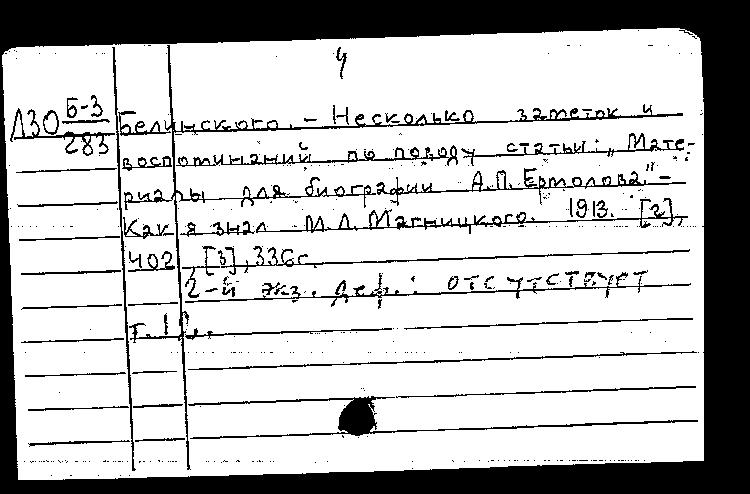 4
ЛЗО Б-3/283 Белинского. - Несколько заметок и
воспоминаний по поводу статьи: „Мате-
риалы для биографии А.П. Ермолова." -
Как я знал М.Л. Магницкого. 1913. [2],
402, [3], 336с.
2-й экз. деф.: отсутствует
т.12.